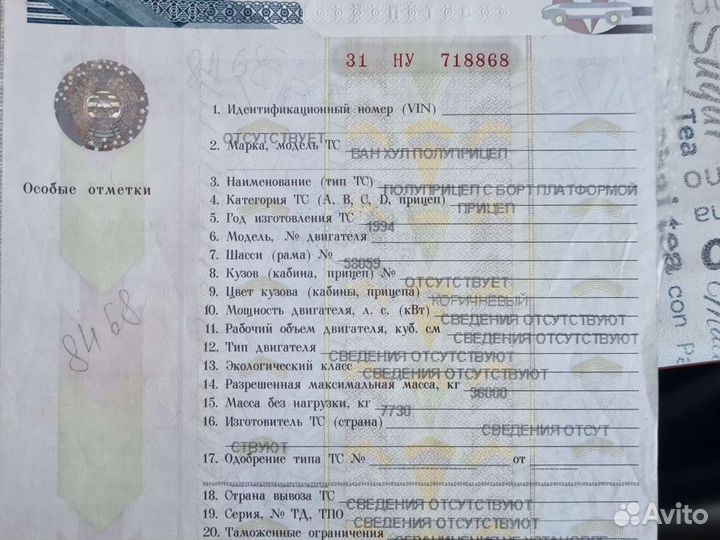 31 НУ 718868
8468
1. Идентификационный номер (VIN)
ОТСУТСТВУЕТ
2. Марка, модель ТС ВАН ХУЛ ПОЛУПРИЦЕП
Особые отметки
3. Наименование (тип ТС) ПОЛУПРИЦЕП С БОРТ ПЛАТФОРМОЙ
4. Категория ТС (A, B, C, D, прицеп) ПРИЦЕП
5. Год изготовления ТС 1994
6. Модель, № двигателя
7. Шасси (рама) № 58059
8. Кузов (кабина, прицеп) № ОТСУТСТВУЕТ
9. Цвет кузова (кабины, прицепа) КОРИЧНЕВЫЙ
10. Мощность двигателя, л. с. (кВт) СВЕДЕНИЯ ОТСУТСТВУЮТ
11. Рабочий объем двигателя, куб. см СВЕДЕНИЯ ОТСУТСТВУЮТ
12. Тип двигателя СВЕДЕНИЯ ОТСУТСТВУЮТ
13. Экологический класс СВЕДЕНИЯ ОТСУТСТВУЮТ
14. Разрешенная максимальная масса, кг 36000
15. Масса без нагрузки, кг 7730
16. Изготовитель ТС (страна) СВЕДЕНИЯ ОТСУТ
СТВУЮТ
17. Одобрение типа ТС № от
18. Страна вывоза ТС СВЕДЕНИЯ ОТСУТСТВУЮТ
19. Серия, № ТД, ТПО СВЕДЕНИЯ ОТСУТСТВУЮТ
20. Таможенные ограничения
8468
Tea
con
Avito